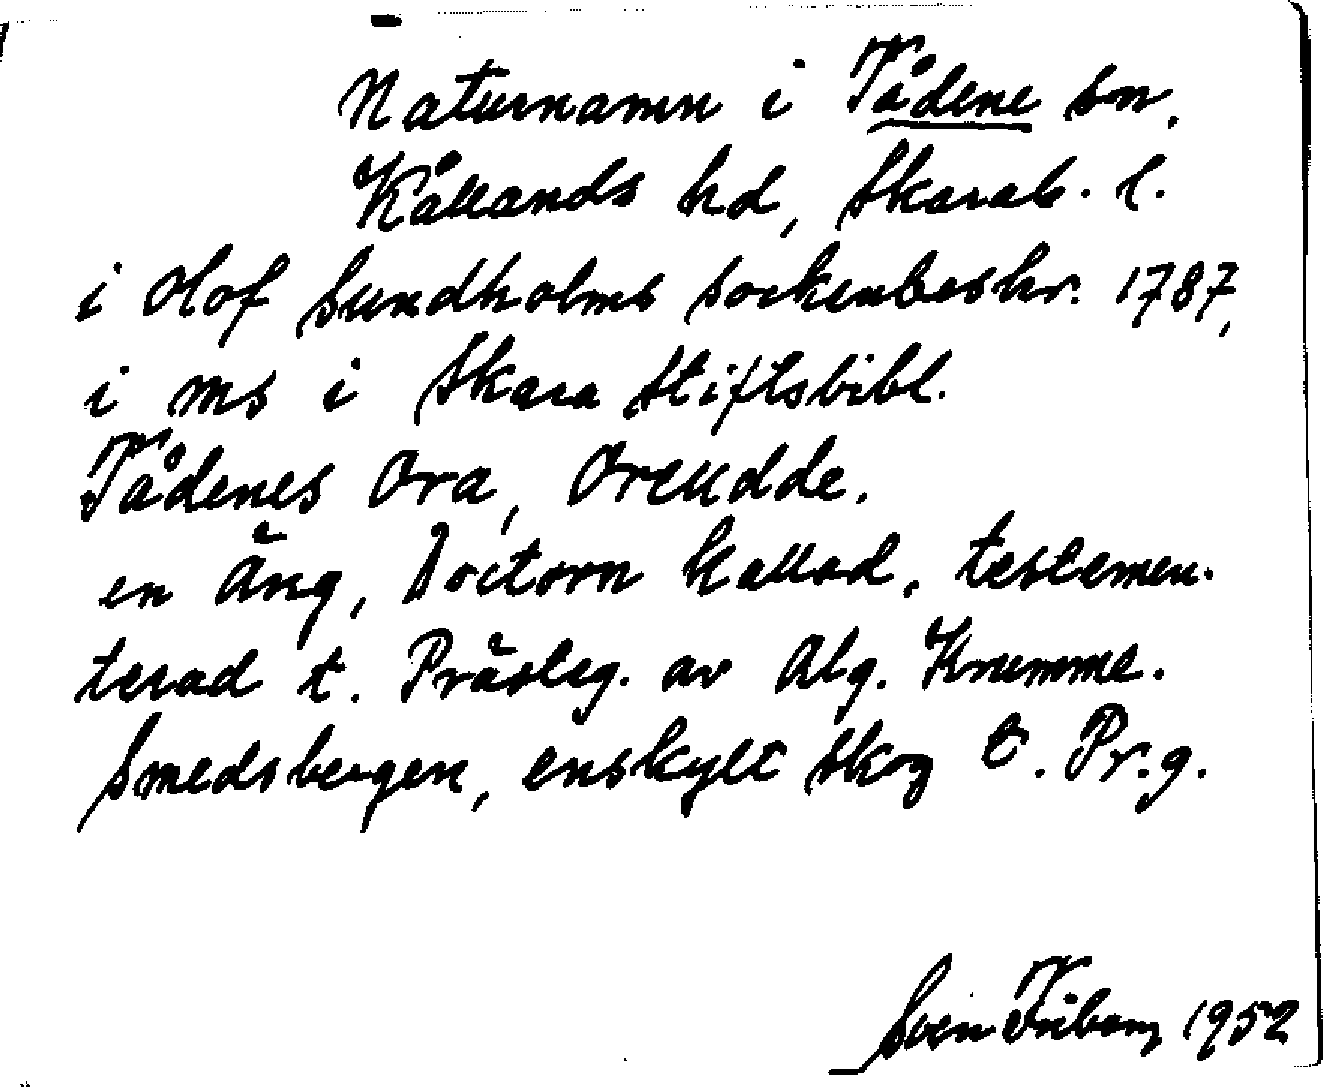 Naturnamn i Tådene sn,
Kållands hd, Skarab. l.
i Olof Sundholms sockenbeskr. 1787,
i ms i Skara Stiftsbibl.
Tådenes Ora, Oreudde.
en Äng, Doctorn kallad, testemen-
terad t. Prästeg. av Alg. Krumme.
Smedsbergen, enskylt skog t. Pr.g.
Sven 1952